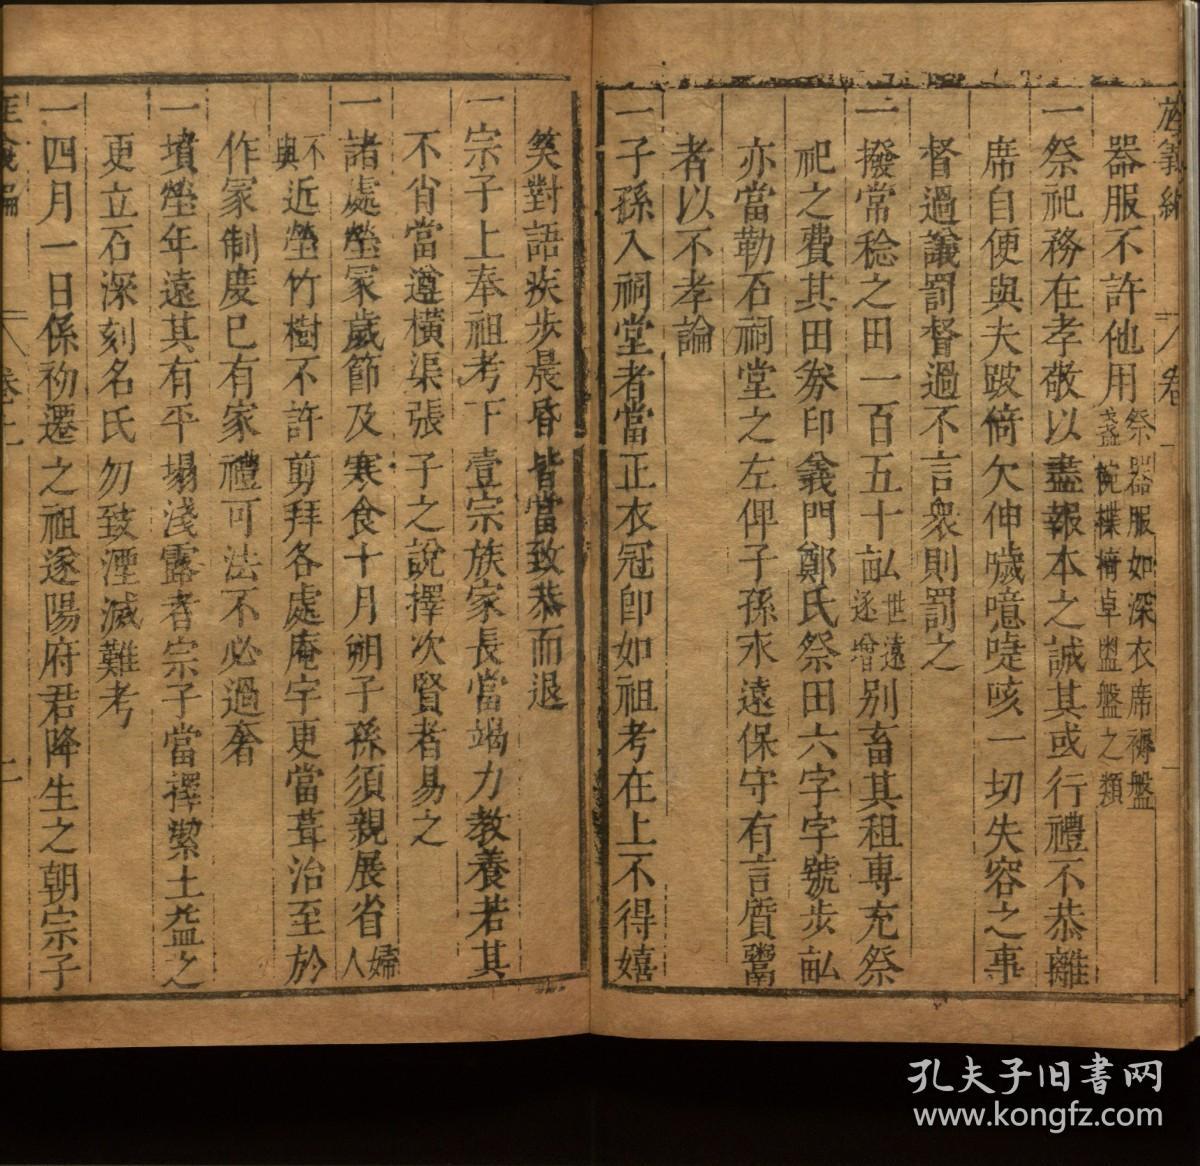 器服不許他用祭器服如深衣席褥盤盞椀楪椅卓盥盤之類
一祭祀務在孝敬以盡報本之誠其或行禮不恭離
席自便與夫跛倚欠伸噦噫嚏咳一切失容之事
督過議罰督過不言衆則罰之
一撥常稔之田一百五十畝世遠逐增別畜其租專充祭
祀之費其田券印義門鄭氏祭田六字字號步畝
亦當勒石祠堂之左俾子孫永遠保守有言質鬻
者以不孝論
一子孫入祠堂者當正衣冠卽如祖考在上不得嬉
笑對語疾步晨昏皆當致恭而退
一宗子上奉祖考下壹宗族家長當竭力教養若其
不肖當遵橫渠張子之說擇次賢者易之
一諸處塋冢歲節及寒食十月朔子孫須親展省婦人
不與近塋竹樹不許剪拜各處庵宇更當葺治至於
作冢制度已有家禮可法不必過奢
一墳塋年遠其有平塌淺露者宗子當擇潔土益之
更立石深刻名氏勿致湮滅難考
一四月一日係初遷之祖遂陽府君降生之朝宗子
卷十一
孔夫子旧书网
www.kongfz.com